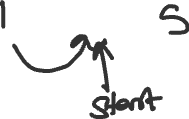 1 S
Start